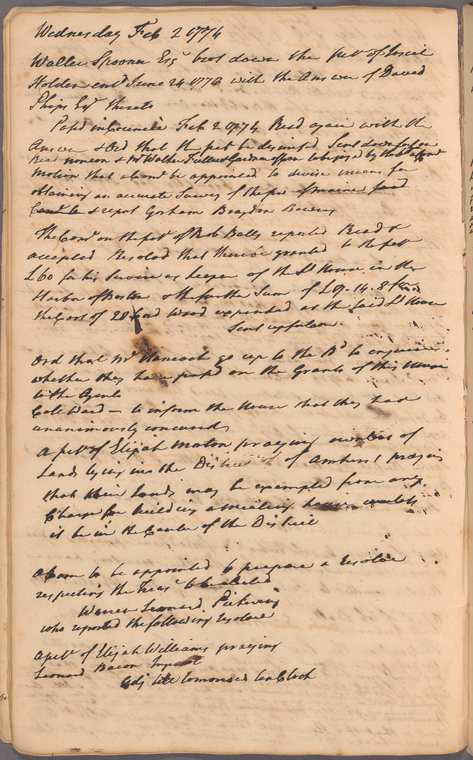 Wednesday Feb 2 1774
Walter Spooner Esqr brot down the petn of
Holden entd June 24 1773 with the Answer of David
Phips Esqr thereto
Passd in Council Feb 2 1774 Read again with the
Answer & Ord that the petn be dismissed Sent down for con
Read
motion that a Comtee be appointed to devise means for
obtaining an accurate Survey of the
& report Gorham Bragdon
The Comtee on the petn of Rob Balls reported Read &
accepted Resolved that there be granted to the petr
£60 for his Service as keeper of the Lt House in the
Harbor of Boston & the further Sum of £9.14.8
the Cost of 28 Cord Wood expended at the said Lt House
Sent up for Con.
Ord that Mr Hancock go up to the Bd to enquire
whether they have passd on the Grants of this House
to the Agents
Colo Ward — to inform the House that they had
unanimously concurrd
A petn of Elijah Moton praying owners of
Lands lying in the District of Amherst praying
that their Lands may be exempted from any
Charge for building a meeting house unless
it be in the Center of the District
A Com to be appointed to prepare a Resolve
respecting the Treasr to be elected
Warren Leonard Pickering
who reported the following resolve
A petn of Elijah Williams praying
Leonard Bacon
Adj till tomorrow ten Clock